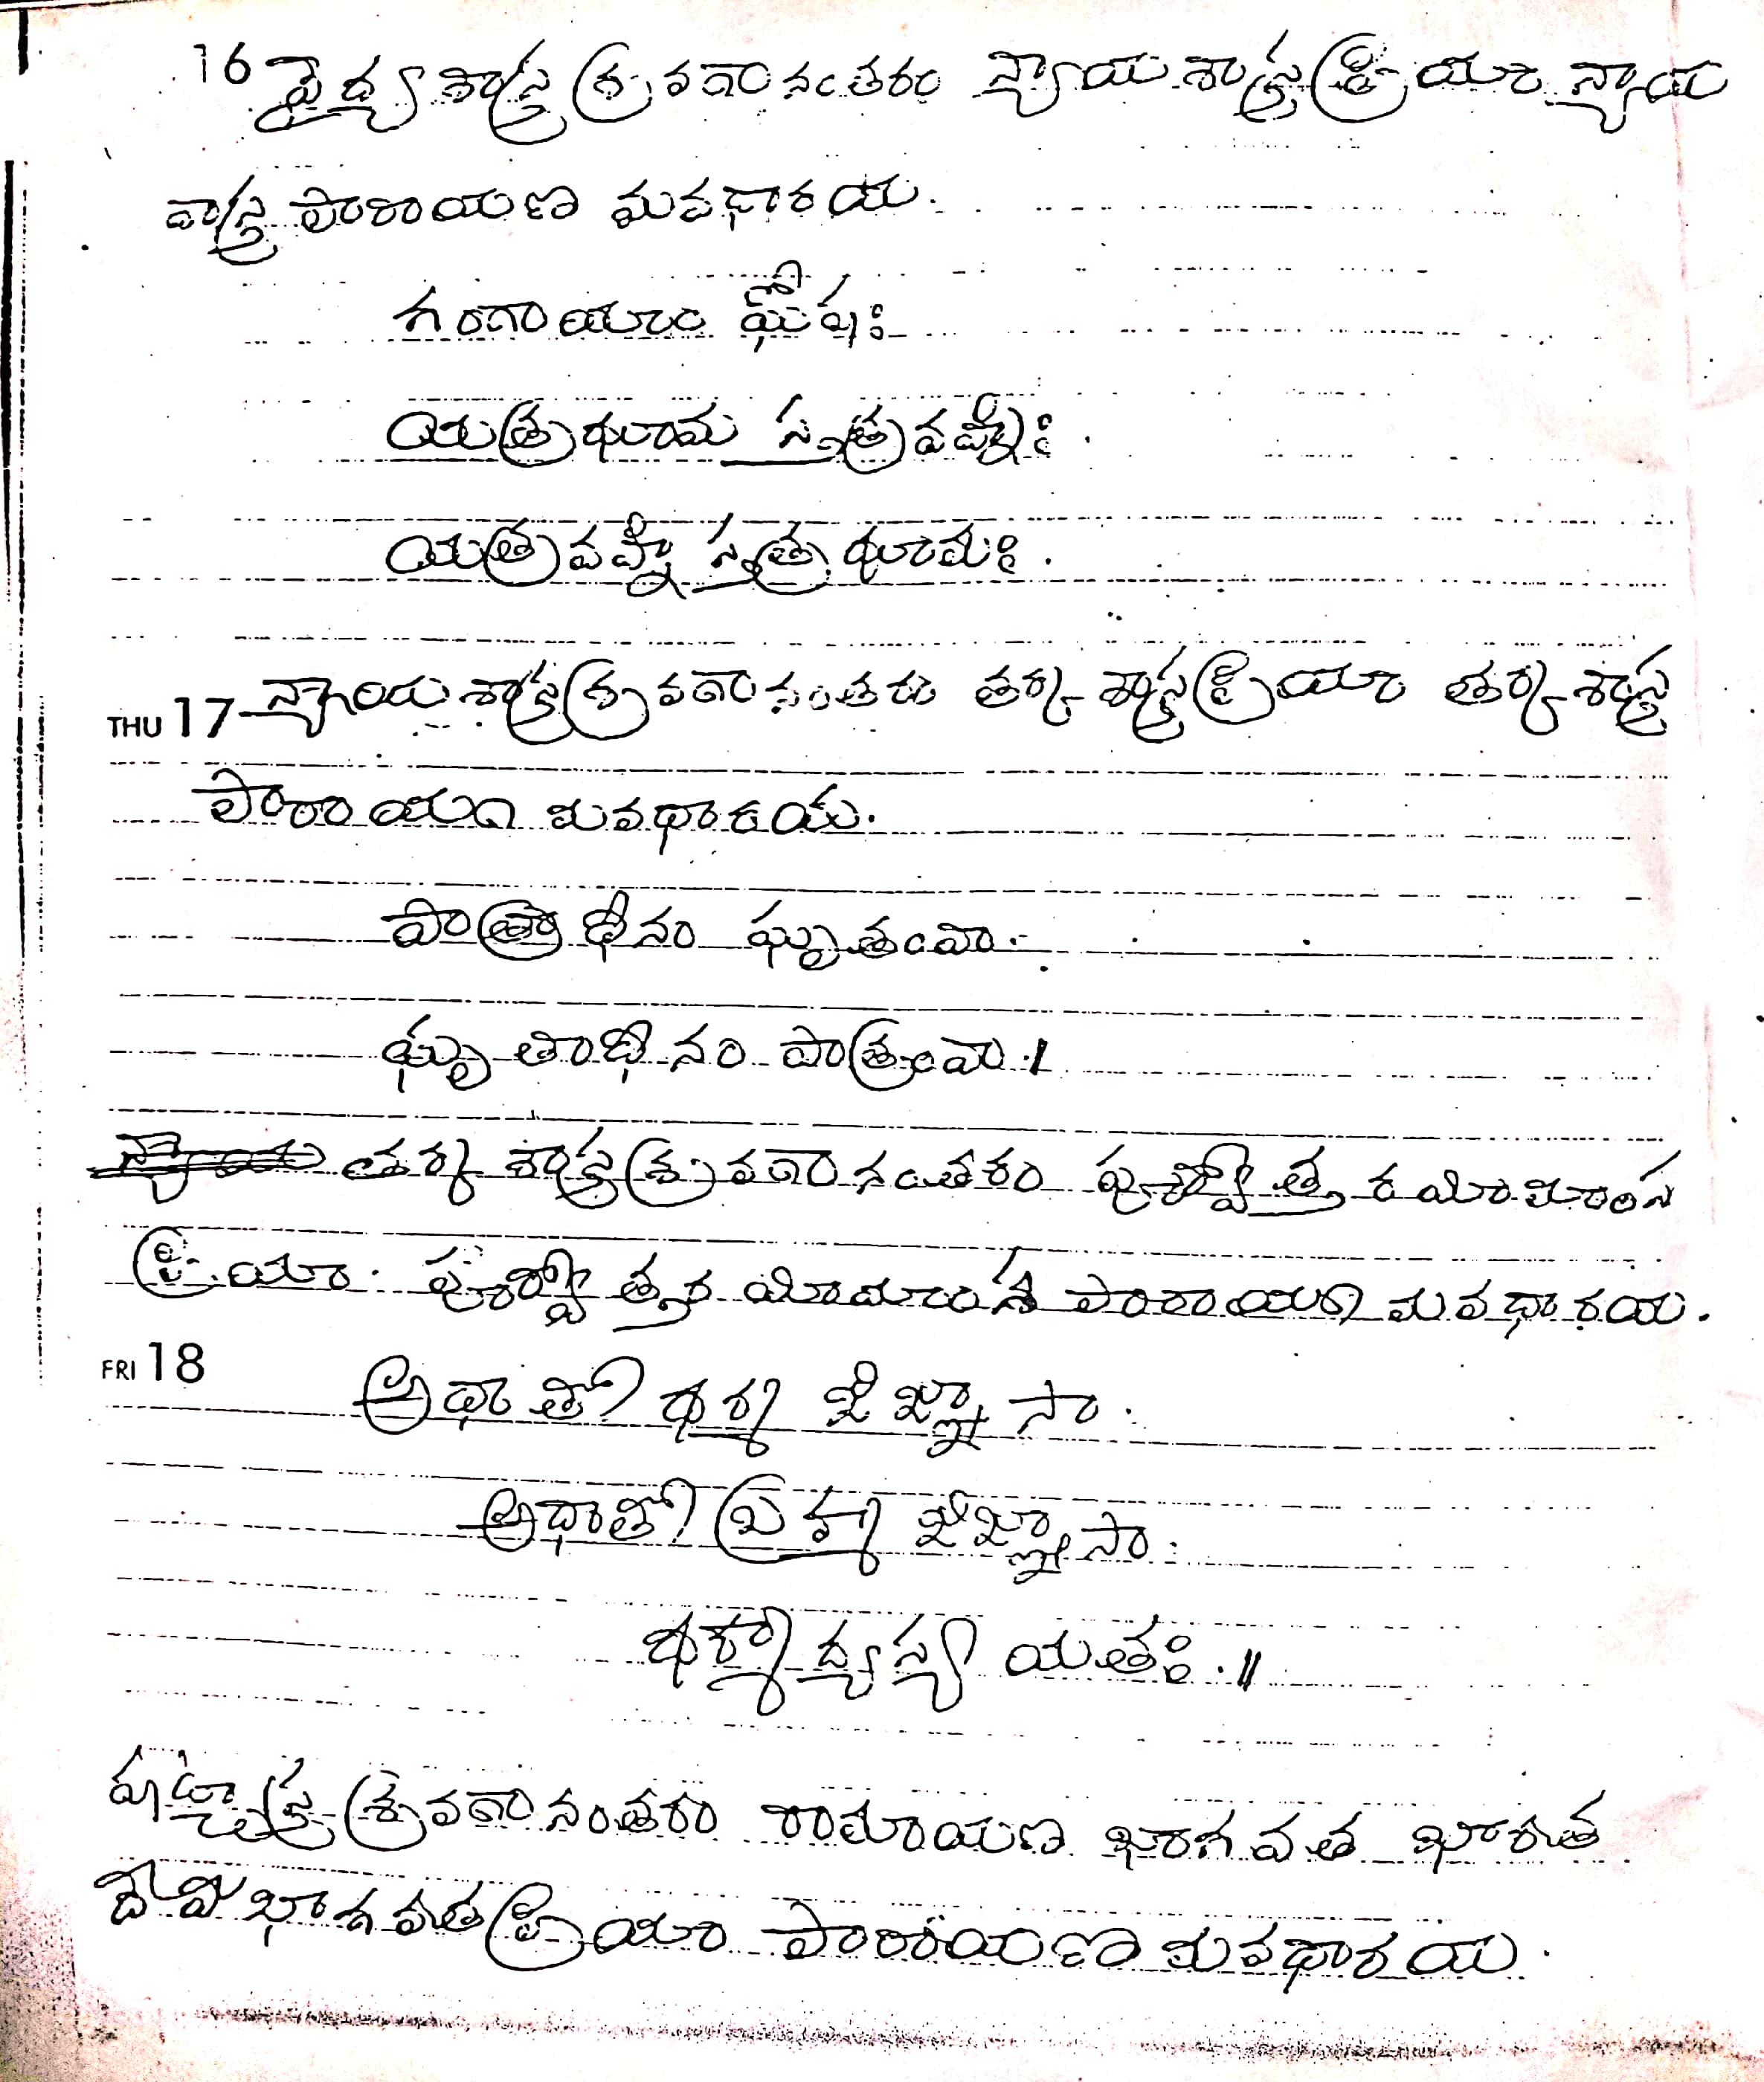 16 వైద్యశాస్త్ర శ్రవణానంతరం న్యాయశాస్త్రప్రియా న్యాయ
శాస్త్ర పారాయణ మవధారయ.
గంగాయాం ఘోషః
యత్రధూమ స్తత్రవహ్నిః.
యత్రవహ్ని స్తత్ర ధూమః.
THU 17 న్యాయశాస్త్రశ్రవణానంతరం తర్కశాస్త్రప్రియా తర్కశాస్త్ర
పారాయణ మవధారయ.
పాత్రాధీనం ఘృతంవా.
ఘృతాధీనం పాత్రంవా.।
తర్క శాస్త్రశ్రవణానంతరం పూర్వోత్తరమీమాంస
ప్రియా. పూర్వోత్తర మీమాంస పారాయణ మవధారయ.
FRI 18 అధాతో ధర్మ జిజ్ఞాసా.
అధాతో బ్రహ్మ జిజ్ఞాసా.
ధర్మాద్యస్య యతః.॥
షట్చాస్త్ర శ్రవణానంతరం రామాయణ భాగవత భారత
దేవిభాగవతప్రియా పారాయణ మవధారయ.